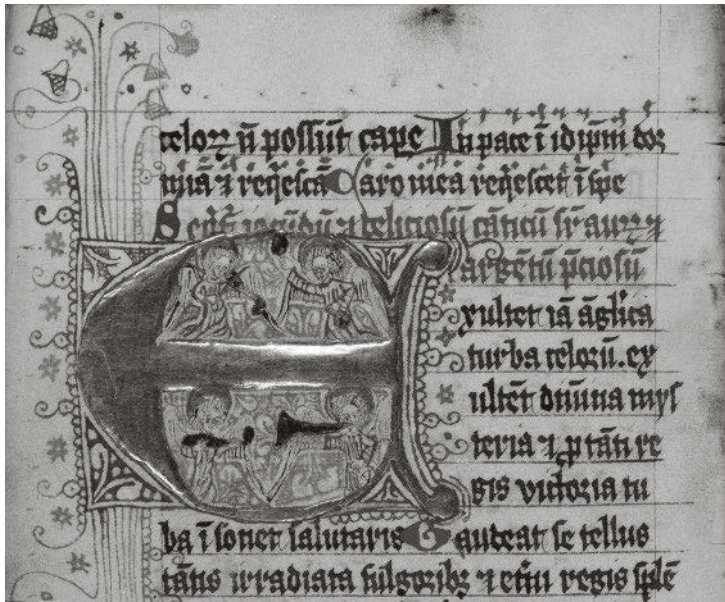 celoꝝ ñ possūt cape In pace ī idip̄m dor
miā ⁊ reꝗescā Caro mea reꝗescet ī spe
Seq̄t iocūdū ⁊ religiosū cāticū sr̄ auꝝ ⁊
argētū p̄ciosū
Exultet iā āglica
turba celorū . ex
ultēt diuīna mys
teria ⁊ ꝓ tāti re
gis victoria tu
ba īsonet salutaris Gaudeat se tellus
tātis irradiata fulgoribꝫ ⁊ et̄ni regis splē